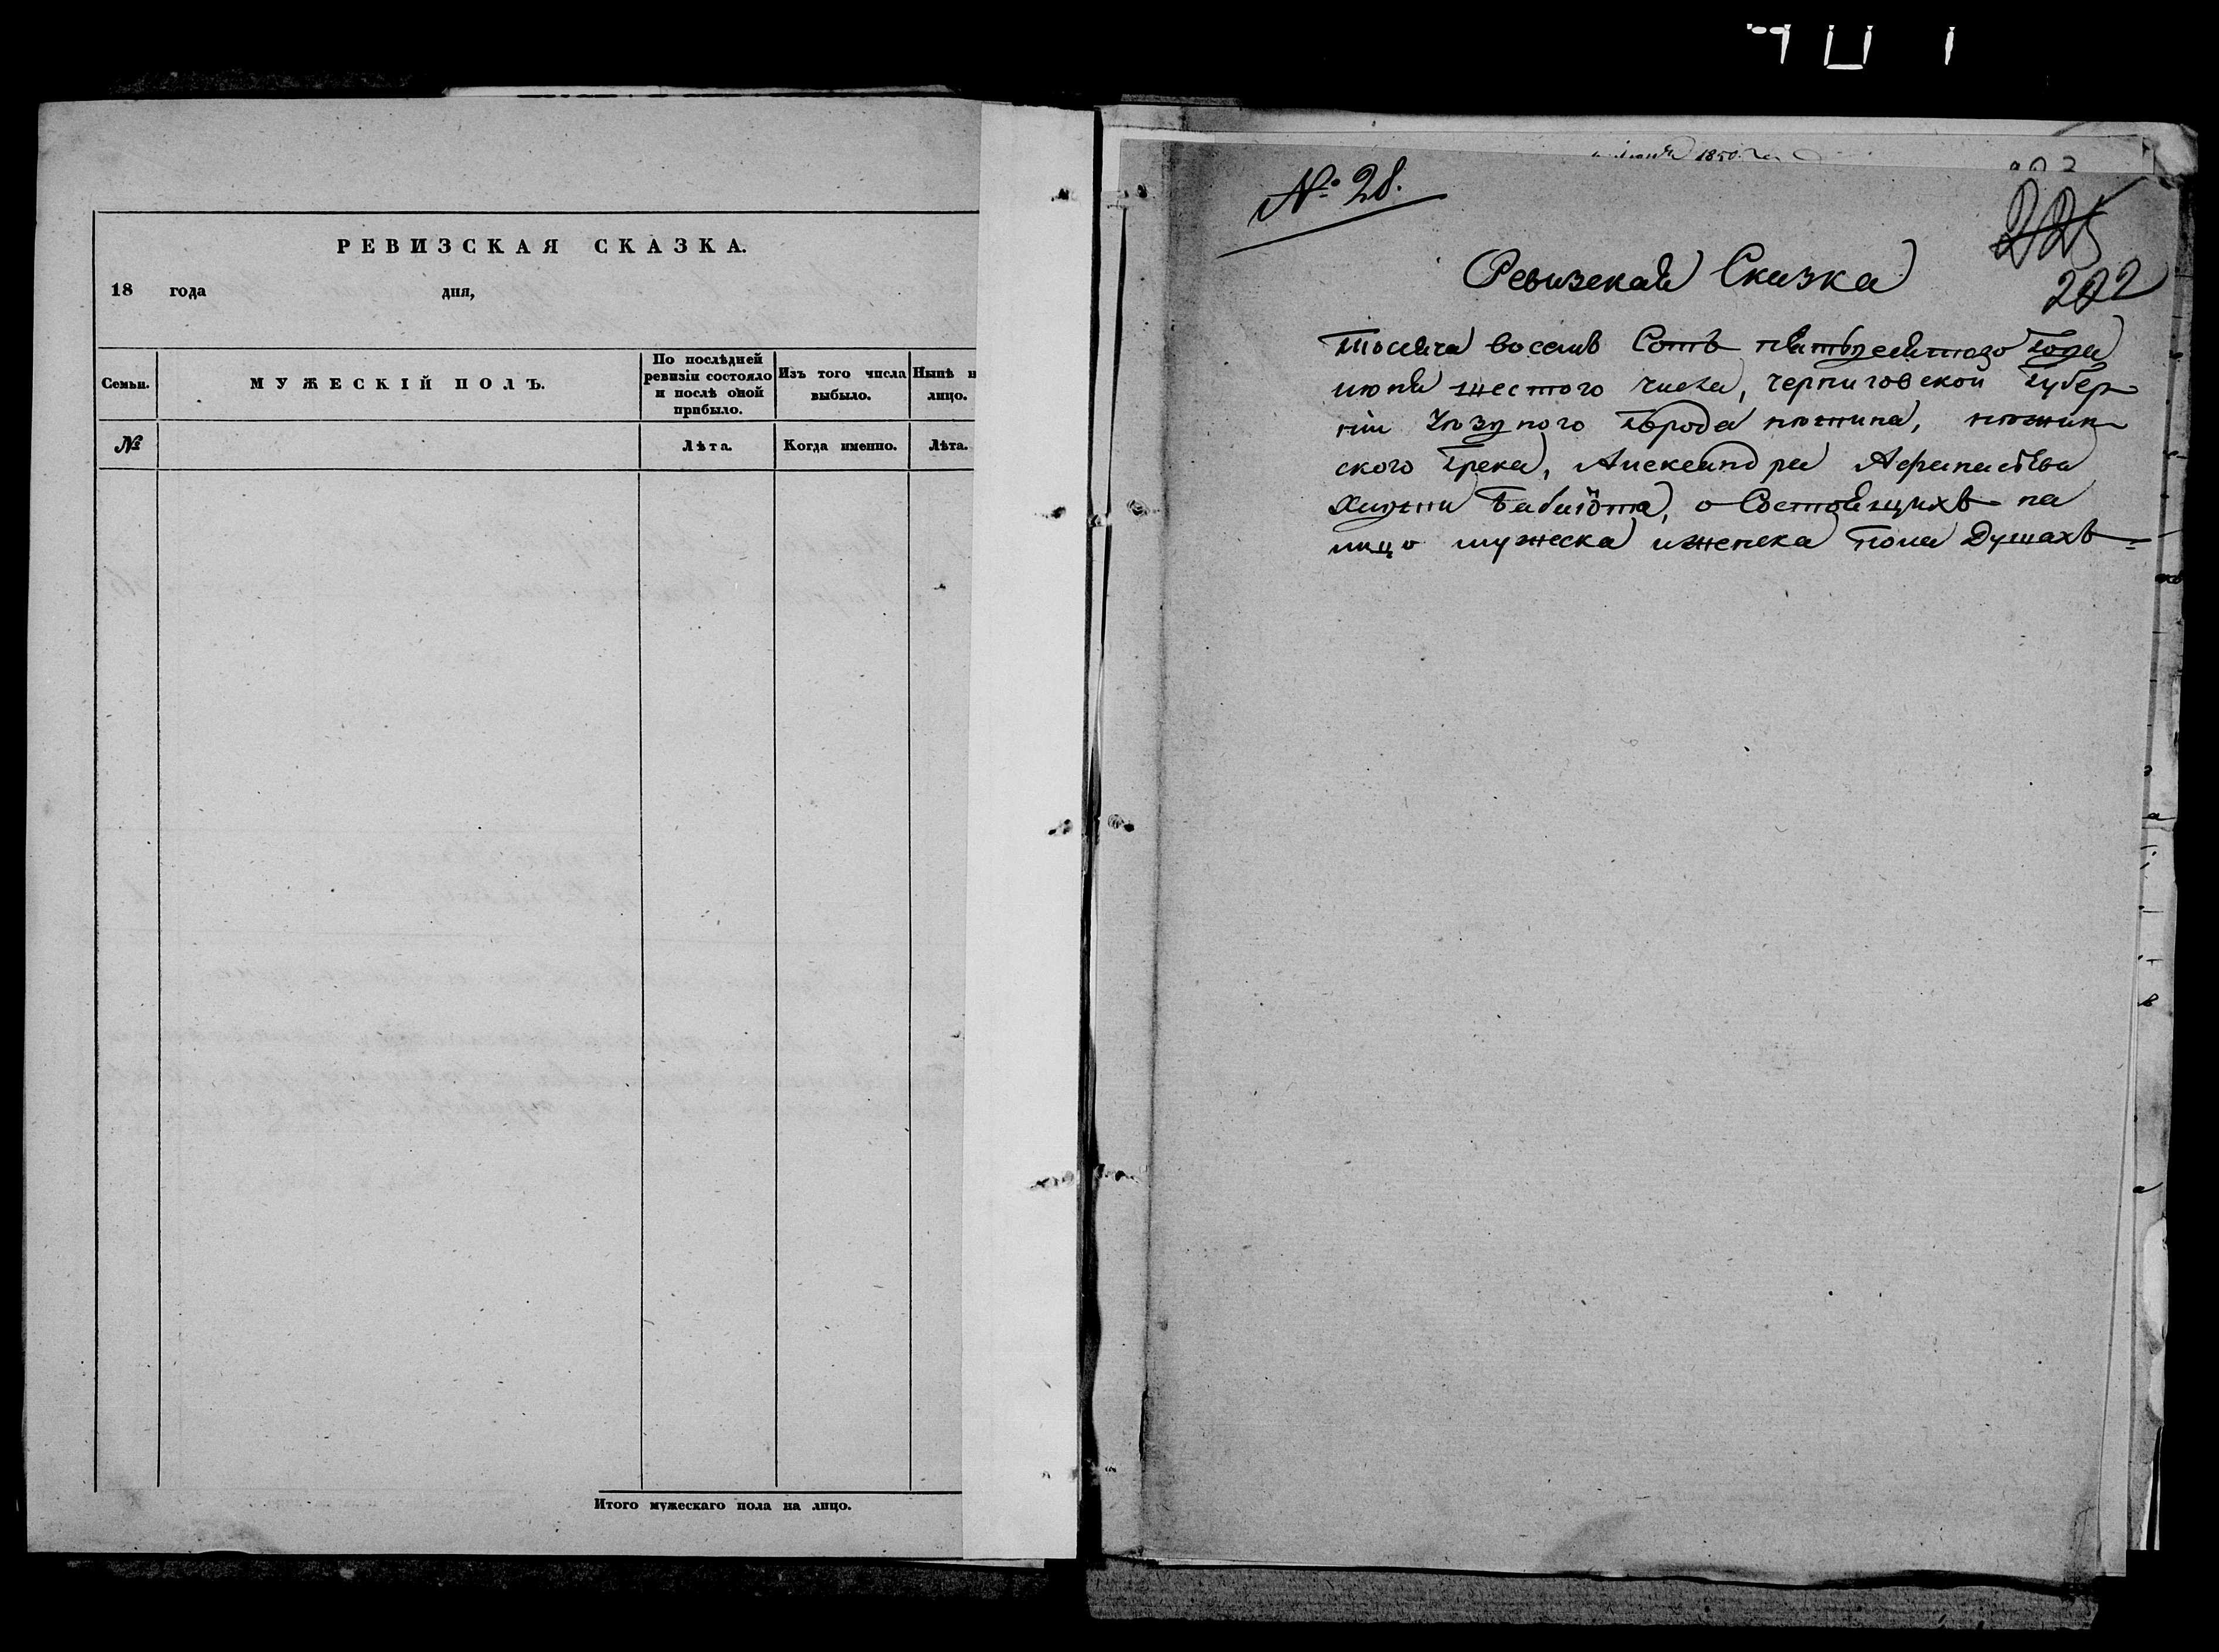 РЕВИЗСКАЯ СКАЗКА.
18 года дня,
Семьи.
МУЖЕСКІЙ ПОЛЪ.
По послѣдней
ревизіи состояло
и послѣ оной
прибыло.
Изъ того числа
выбыло.
Нынѣ н
лицо.
№
Лѣта.
Когда именно.
Лѣта.
Итого мужескаго пола на лицо.
1850
№ 28.
225
202
Ревизская Сказка
Тысяча восемь Сотъ пятьдесятого Года
июня шестого числа, черниговской Губер
нии уѣздного Города нѣжина, нѣжин
ского Грека, Александра Афанасьева
сына о Состоящихъ на
лицо мужеска и женска пола Душахъ